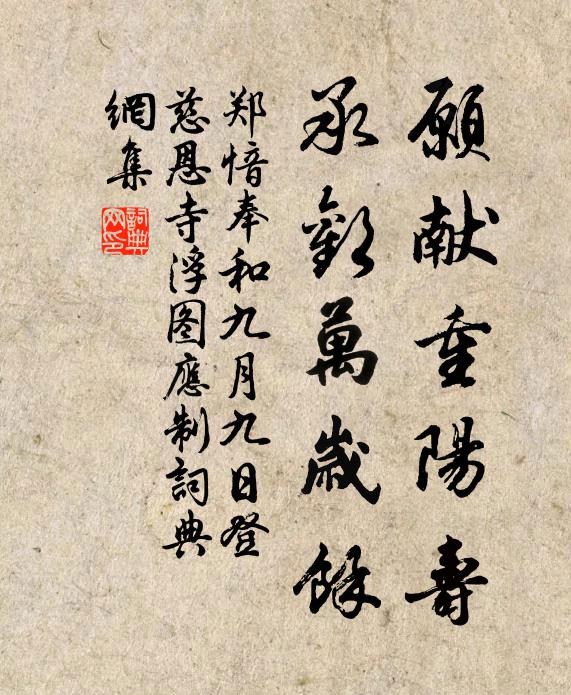 願献重陽壽
承歡萬歲餘
郑愔奉和九月九日登
慈恩寺浮图應制詞典
網集
詞典
网印